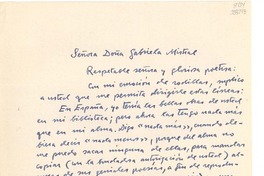 Señora Doña Gabriela Mistral
Respetable señora y gloriosa poetisa:
Con mi emoción de rodillas, suplico
a usted que me permita dirigirle estas líneas:
En España, yo tenía las bellas obras de usted
en mi biblioteca; pero ahora las tengo nada más
en mi alma. Digo «nada más», cuando de-
biera decir «nada menos», porque del alma no
me puedo sacar ninguna de ellas, para mandar
copias (con la bondadosa autorización de usted) al-
gunas de sus geniales poesías, a fin de reprodu-